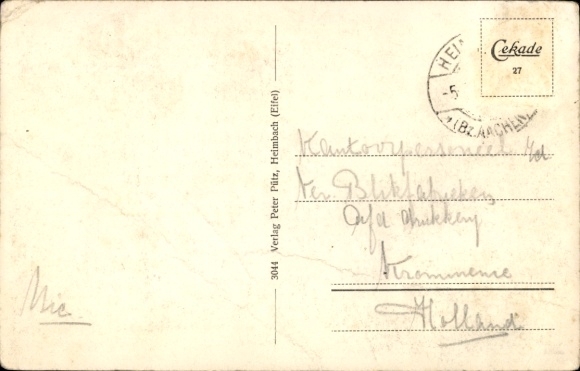 Cekade
27
HEIM
-5.
(Bz. AACHEN)
3044 Verlag Peter Pütz, Heimbach (Eifel)
Kantoorpersoneel v/d
Ver Blikfabrieken
Afd drukkerij
Krommenie
Holland